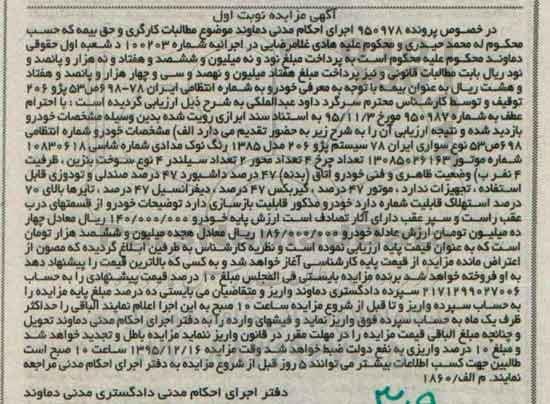 آگهی مزایده نوبت اول
در خصوص پرونده ۹۵۰۹۷۸ اجرای احکام مدنی دماوند موضوع مطالبات کارگری و حق بیمه که حسب
محکوم له محمد حیدری و محکوم علیه هادی غلامرضایی در اجرائیه شماره ۱۰۰۲۰۳ د شعبه اول حقوقی
دماوند محکوم علیه محکوم است به پرداخت مبلغ نود و نه میلیون و ششصد و هفتاد و نه هزار و پانصد و
نود ریال بابت مطالبات قانونی و نیز پرداخت مبلغ هفتاد میلیون و نهصد و سی و چهار هزار و پانصد و هفتاد
و هشت ریال به عنوان بیمه با توجه به معرفی خودرو به شماره انتظامی ایران ۷۸-۶۹۸ص۵۳ پژو ۲۰۶
توقیف و توسط کارشناس محترم سرگرد داود عبدالملکی به شرح ذیل ارزیابی گردیده است : با احترام
عطف به شماره ۹۵۰۹۸۷ مورخ ۹۵/۱۱/۳ به استناد سند ابرازی رویت شده بدین وسیله مشخصات خودرو
بازدید شده و نتیجه ارزیابی آن را به شرح زیر به حضور تقدیم می دارد الف) مشخصات خودرو شماره انتظامی
۶۹۸ص۵۳ نوع سواری ایران ۷۸ سیستم پژو ۲۰۶ مدل ۱۳۸۵ رنگ نوک مدادی شماره شاسی ۱۰۸۳۰۶۱۸
شماره موتور ۱۳۰۸۵۰۲۶۱۶۳ تعداد چرخ ۴ تعداد محور ۲ تعداد سیلندر ۴ نوع سوخت بنزین ، ظرفیت
۴ نفر ب) وضعیت ظاهری و فنی خودرو اتاق (بدنه) ۴۷ درصد داشبورد ۴۷ درصد صندلی و تودوزی قابل
استفاده ، تجهیزات ندارد ، موتور ۴۷ درصد ، گیربکس ۴۷ درصد ، دیفرانسیل ۴۷ درصد ، تایرها بالای ۷۰
درصد استهلاک قابلیت شماره دارد خودرو مذکور قابلیت بازسازی دارد توضیحات خودرو از قسمتهای درب
عقب راست و سپر عقب دارای آثار تصادف است ارزش پایه خودرو ۱۴۰/۰۰۰/۰۰۰ ریال معادل چهار
ده میلیون تومان ارزش عادله خودرو ۱۸۶/۰۰۰/۰۰۰ ریال معادل هجده میلیون و ششصد هزار تومان
است که به عنوان قیمت پایه ارزیابی نموده است و نظریه کارشناس به طرفین ابلاغ گردیده که مصون از
اعتراض مانده مزایده از قیمت پایه کارشناسی آغاز خواهد شد و به کسی که بالاترین قیمت را پیشنهاد دهد
به او فروخته خواهد شد برنده مزایده بایستی فی المجلس مبلغ ۱۰ درصد قیمت پیشنهادی را به حساب
۲۱۷۱۲۹۹۰۲۷۰۰۶ سپرده دادگستری دماوند واریز و متقاضیان می بایستی ده درصد مبلغ پایه مزایده را
به حساب سپرده واریز و تا قبل از شروع مزایده ساعت ۱۰ صبح به این اجرا اعلام نمایند الباقی را حداکثر
ظرف یک ماه به حساب سپرده فوق واریز نماید و فیشهای وارده را به دفتر اجرای احکام مدنی دماوند تحویل
و چنانچه مبلغ الباقی قیمت مزایده را در مهلت مقرر در قانون واریز ننماید مزایده باطل و تجدید خواهد شد
و مبلغ ۱۰ درصد واریزی به نفع دولت ضبط خواهد شد وقت مزایده ۱۳۹۵/۱۲/۱۶ ساعت ۱۰ صبح است
طالبین جهت کسب اطلاعات بیشتر می توانند ۵ روز قبل از شروع مزایده به دفتر اجرای احکام مدنی مراجعه
نمایند. م الف/۱۸۶۰
دفتر اجرای احکام مدنی دادگستری مدنی دماوند